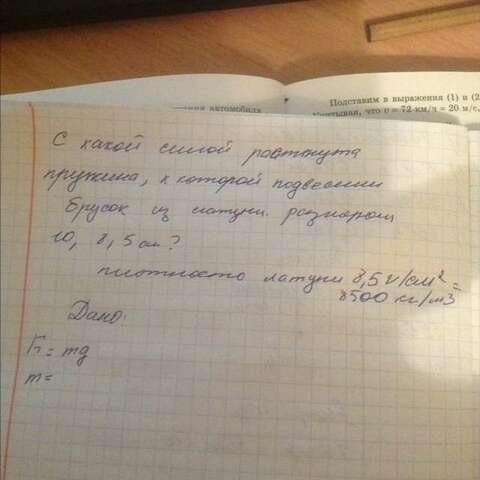 ния автомобиля
Подставим в выражения (1) и (2
что v = 72 км/ч = 20 м/с,
С какой силой растянута
пружина, к которой подвесили
брусок из латуни размером
10, 8, 5 см?
плотность латуни 8,5 г/см² =
8500 кг/м3
Дано:
F = mg
m =